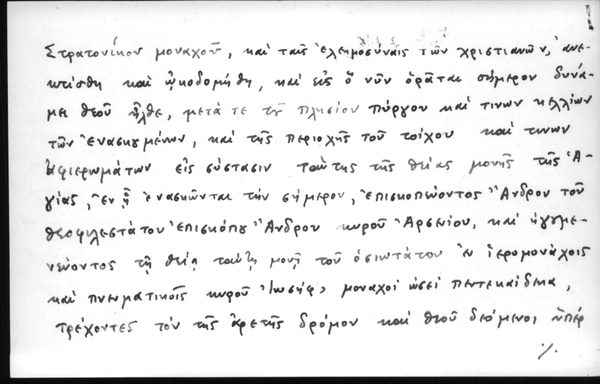 Στρατονίκου μοναχοῦ, καὶ ταῖς ἐλεημοσύναις τῶν χριστιανῶν, ἀνε-
κτίσθη καὶ ᾠκοδομήθη, καὶ εἰς ὃ νῦν ὁρᾶται σήμερον δυνά-
μει θεοῦ ἦλθε, μετά τε τοῦ πλησίον πύργου καὶ τινων κελλίων
τῶν ἐνασκουμένων, καὶ τῆς περιοχῆς τοῦ τοίχου καὶ τινων
ἀφιερωμάτων εἰς σύστασιν ταύτης τῆς θείας μονῆς τῆς Ἁ-
γίας, ἐν ᾗ ἐνασκῶνται τὴν σήμερον, ἐπισκοπεύοντος Ἄνδρου τοῦ
θεοφιλεστάτου ἐπισκόπου Ἄνδρου κυροῦ Ἀρσενίου, καὶ ἡγουμε-
νεύοντος τῇ θείᾳ ταύτῃ μονῇ τοῦ ὁσιωτάτου ἐν ἱερομονάχοις
καὶ πνευματικοῖς κυροῦ Ἰωσήφ· μοναχοὶ ὡσεὶ πεντεκαίδεκα,
τρέχοντες τὸν τῆς ἀρετῆς δρόμον καὶ θεοῦ δεόμενοι ὑπέρ
·/.